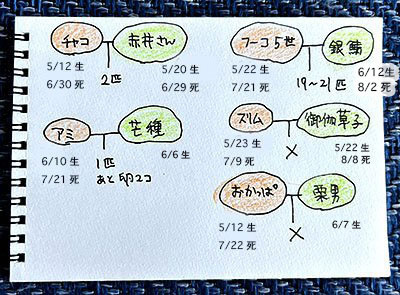 チャコ 赤井さん
5/12 生
6/30 死
2匹
5/20 生
6/29 死
フーコ5世 銀鯖
5/22 生
7/21 死
19〜21匹
6/12生
8/2 死
アミ 芒種
6/10 生
7/21 死
1匹
あと卵2コ
6/6 生
ズリム 御伽草子
5/23 生
7/9 死
×
5/22 生
8/8 死
おかっぱ 栗男
5/12 生
7/22 死
×
6/7 生